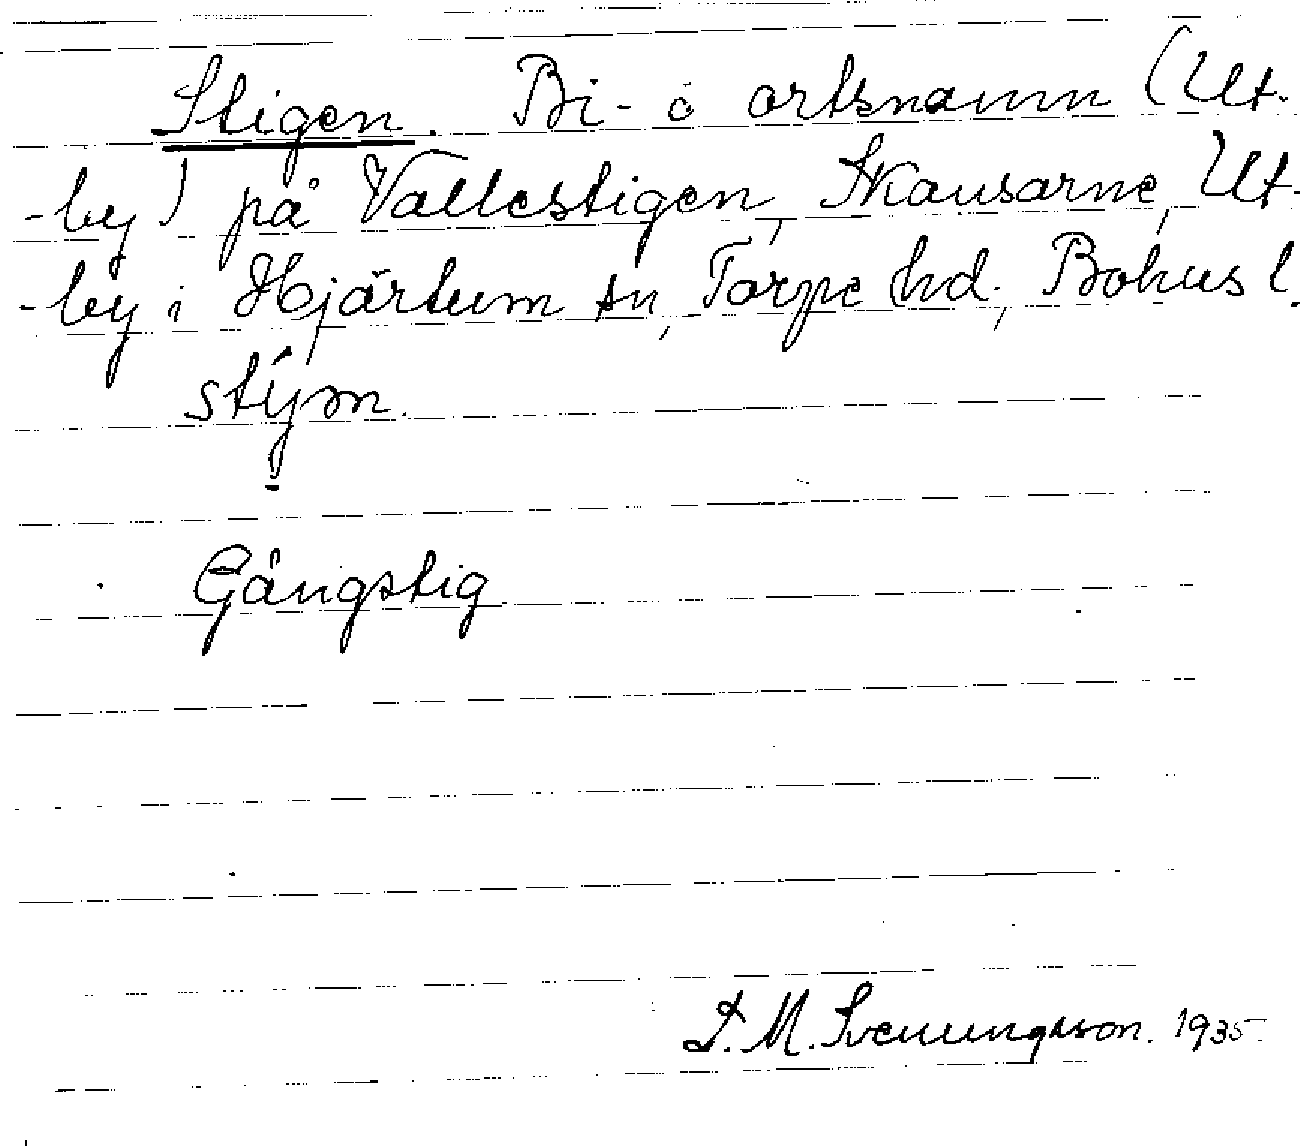 Stigen. Bi- o ortsnamn (Ut-
-by) på Vallestigen, Skausarne, Ut-
-by i Hjärtum sn, Torpe hd., Bohus l.
stým.
Gångstig
S. M. Svenungsson. 1935.